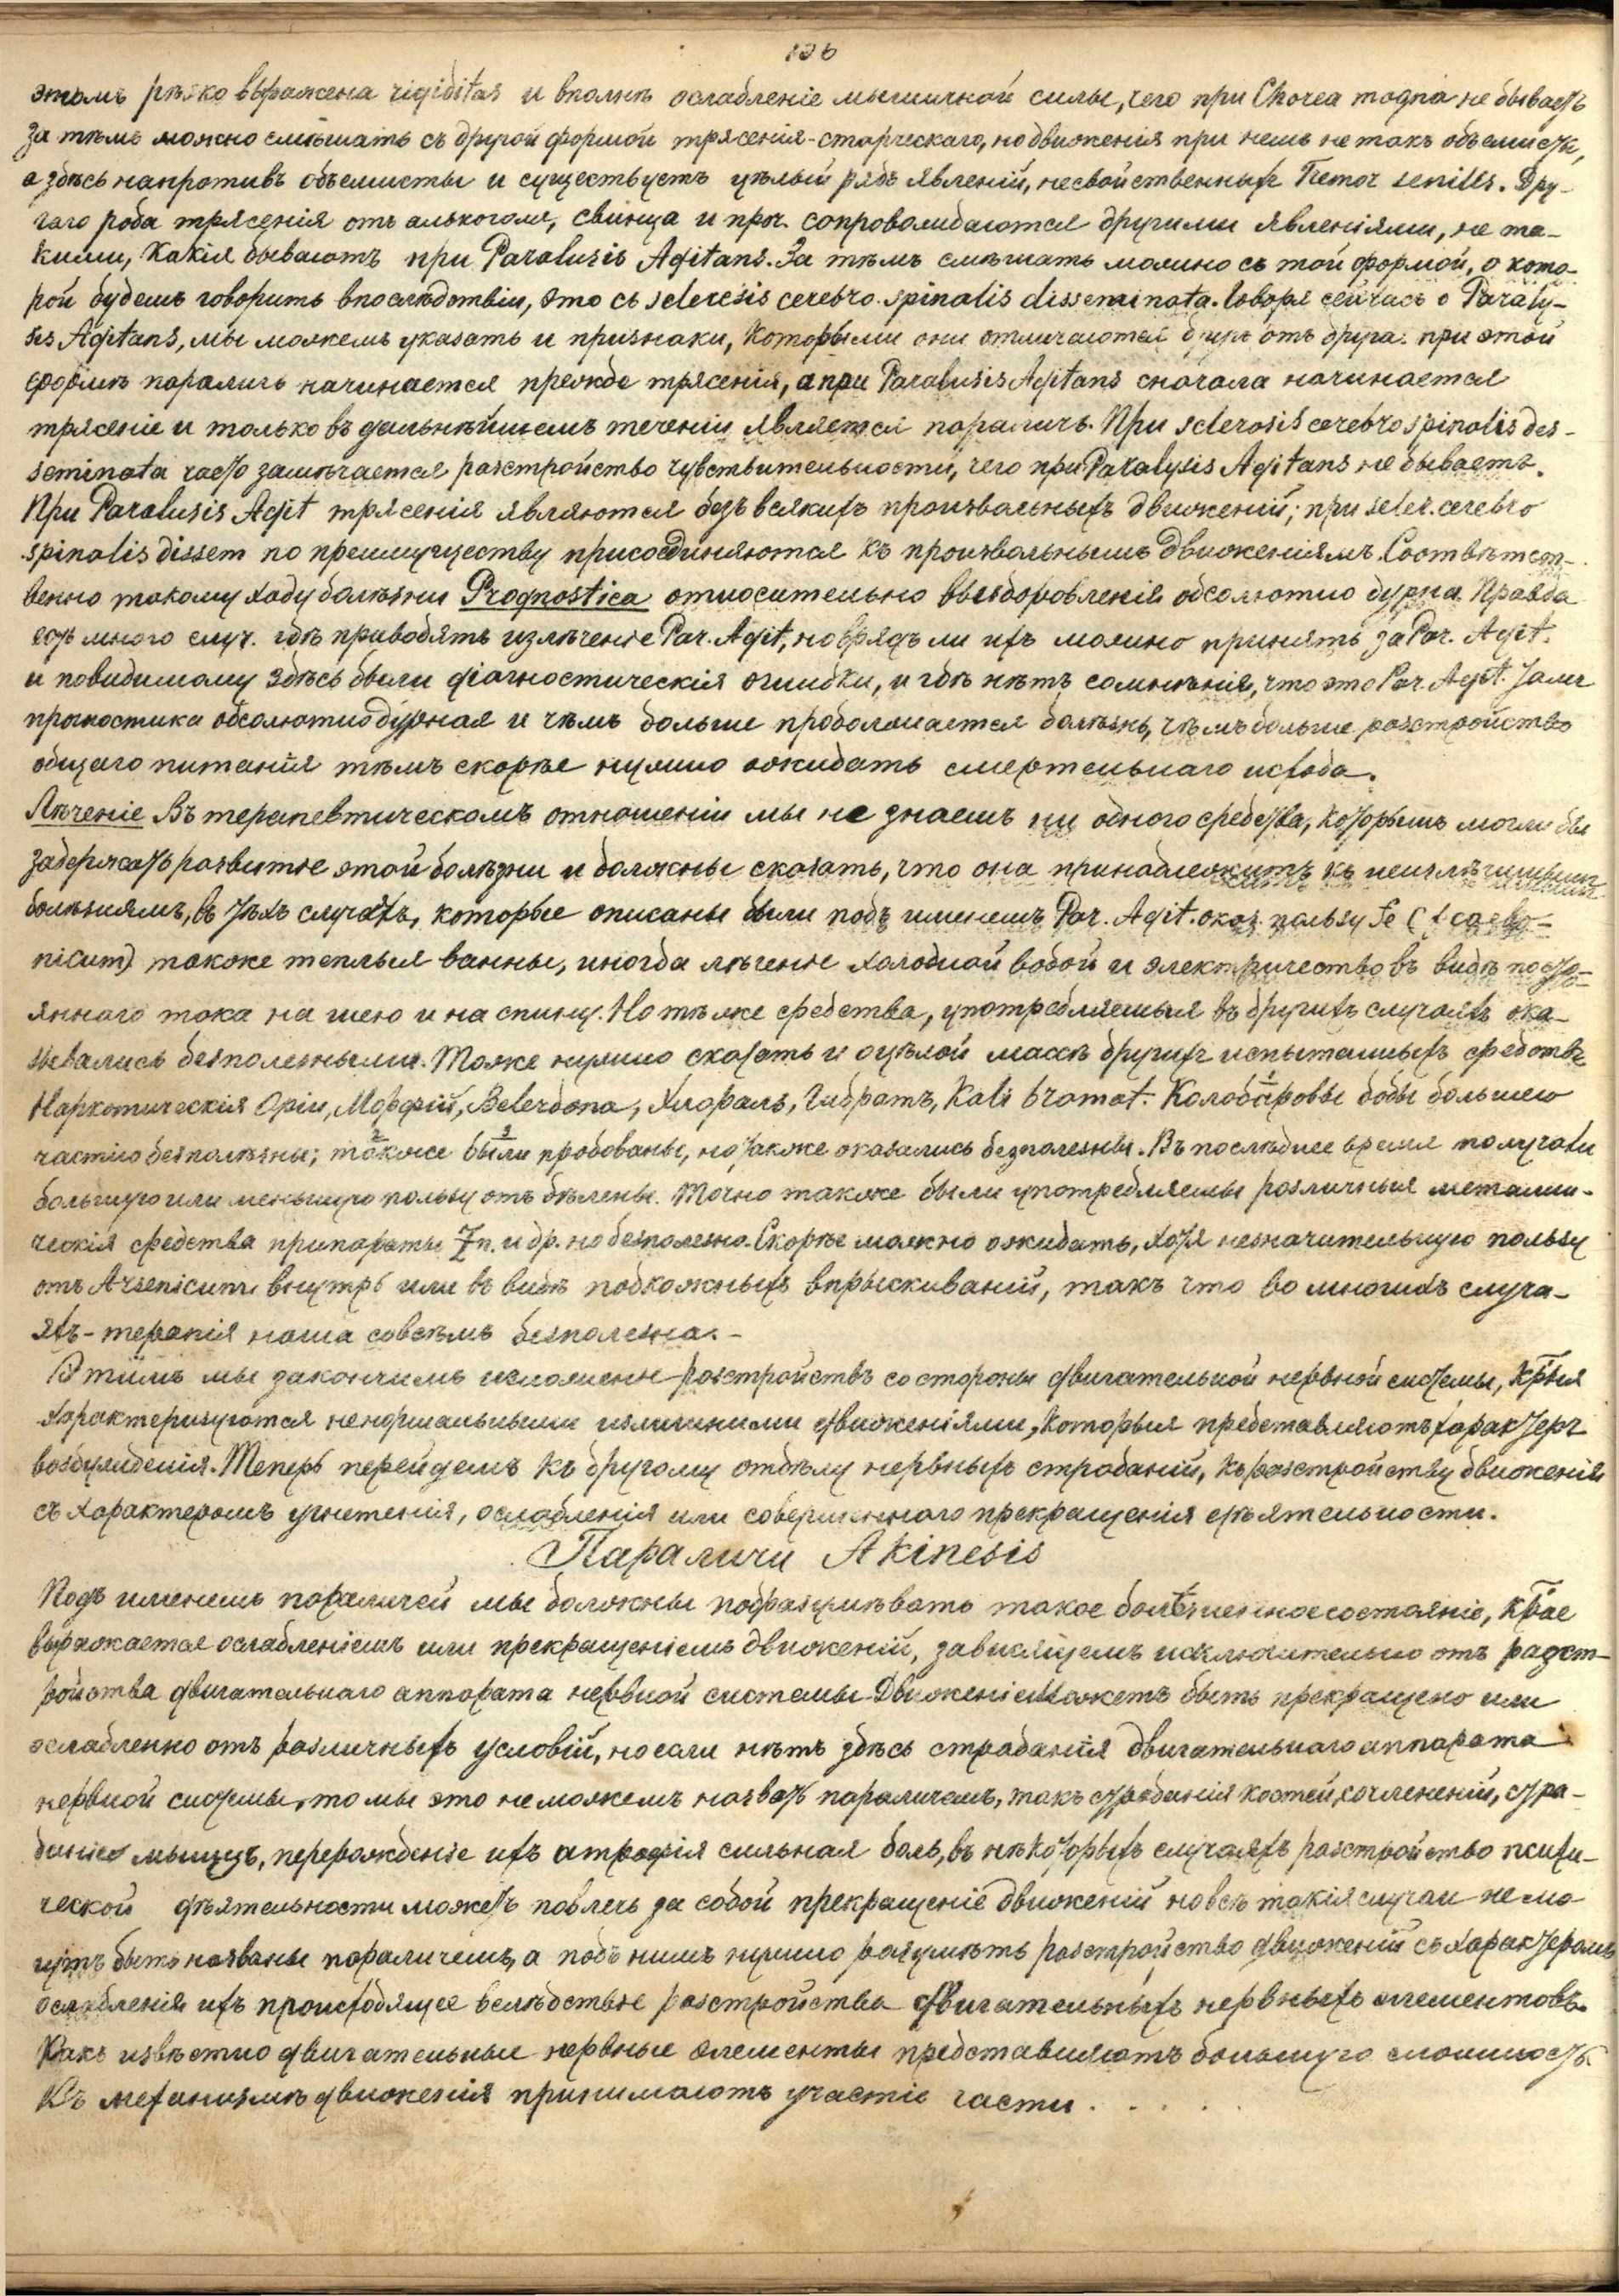 136
этомъ рѣзко выражена rigiditas и вполнѣ ослабленіе мышичной силы, чего при Chorea magna не бываетъ
За тѣмъ можно смѣшать съ другой формой трясенія-старческаго, но движенія при немъ не такъ объемисты,
а здѣсь напротивъ объемисты и существуетъ цѣлый рядъ явленій, несвойственныхъ Tremor senilis. Дру-
гаго рода трясенія отъ алькоголя, свинца и проч. сопровождаются другими явленіями, не та-
кими, какія бываютъ при Paralusis Agitans. За тѣмъ смѣшать можно съ той формой, о кото-
рой будемъ говорить впослѣдствіи, это съ scleresis cerebro-spinalis disseminata. Говоря сейчасъ о Paraly-
sis Agitans, мы можемъ указать и признаки, которыми они отличаются другъ отъ друга: при этой
формѣ параличъ начинается прежде трясенія, а при Paralusis Agitans сначала начинается
трясеніе и только въ дальнѣйшемъ теченіи является параличъ. При sclerosis cerebro spinalis des-
seminata часто замѣчается разстройство чувствительности, чего при Paralysis Agitans не бываетъ.
При Paralusis Agit трясенія являются безъ всякихъ произвальныхъ движеній; при scler. cerebro
spinalis dissem по преимуществу присоединяются къ произвальнымъ движеніямъ. Соотвѣтст-
венно такому ходу болѣзни Prognostica относительно выздоровленія абсолютно дурна. Правда
есть много случ. гдѣ приводятъ излѣченіе Par. Agit, но врядъ ли ихъ можно принять за Par. Agit.
и повидимому здѣсь были діагностическія ошибки, и гдѣ нѣтъ сомнѣнія, что это Par. Agit. тамъ
прогностика абсолютно дурная и чѣмъ больше продолжается болѣзнь, чѣмъ больше разстройство
общаго питанія тѣмъ скорѣе нужно ожидать смертельнаго исхода.
Лѣченіе Въ терапевтическомъ отношеніи мы не знаемъ ни одного средства, которымъ могли бы
задержать развитіе этой болѣзни и должны сказать, что она принадлежитъ къ неизлѣчимымъ
болѣзнямъ, въ тѣхъ случаяхъ, которые описаны были подъ именемъ Par. Agit. оказ. пользу Fe (f. carbo-
nicum) также теплыя ванны, иногда лѣченіе холодной водой и электричество въ видѣ посто-
яннаго тока на шею и на спину. Но тѣ же средства, употребляемыя въ другихъ случаяхъ ока-
зывались безполезными. Тоже нужно сказать и о цѣлой массѣ другихъ испытанныхъ средствъ
Наркотическія Opiи, Морфій, Belerdona, Хлоралъ, Гидратъ, Kali bromat. Колобаровы бобы большею
частію безполѣзны; также были пробованы, но также оказались безполезны. Въ послѣднее время получали
большую или меньшую пользу отъ бѣлены. Точно также были употребляемы различныя металли-
ческія средства припараты Zn. и др. но безполезно. Скорѣе можно ожидать, хотя незначительную пользу
отъ Arsenicum внутрь или въ видѣ подкожныхъ впрыскиваній, такъ что во многихъ случа-
яхъ - терапія наша совсѣмъ безполезна. -
Этимъ мы закончимъ изложеніе разстройствъ со стороны двигательной нервной системы, кр̃ыя
характеризуются ненормальными излишними движеніями, которыя представляютъ характеръ
возбужденія. Теперь перейдемъ къ другому отдѣлу нервныхъ страданій, къ разстройству движенія
съ характеромъ угнетенія, ослабленія или совершеннаго прекращенія дѣятельности.
Параличи Akinesis
Подъ именемъ параличей мы должны подразумѣвать такое болѣзненное состояніе, кр̃ое
выражается ослабленіемъ или прекращеніемъ движеній, зависящемъ исключительно отъ разст-
ройства двигательнаго аппарата нервной системы. Движеніе можетъ быть прекращено или
ослабленно отъ различныхъ условій, но если нѣтъ здѣсь страданія двигательнаго аппарата
нервной системы, то мы это не можемъ назвать параличемъ, такъ страданія костей, сочлененій, стра-
данія мышцъ, перерожденіе ихъ атрофія сильная боль, въ нѣкоторыхъ случаяхъ разстройство психи-
ческой дѣятельности можетъ повлечь за собой прекращеніе движеній но всѣ такія случаи не мо-
гутъ быть названы параличемъ, а подъ нимъ нужно разумѣть разстройство движеній съ характеромъ
ослабленія ихъ происходящее вслѣдствіе разстройства двигательныхъ нервныхъ элементовъ.
Какъ извѣстно двигательные нервные элементы представляютъ большую сложность.
Къ механизмѣ движенія принимаютъ участіе части . . . . .